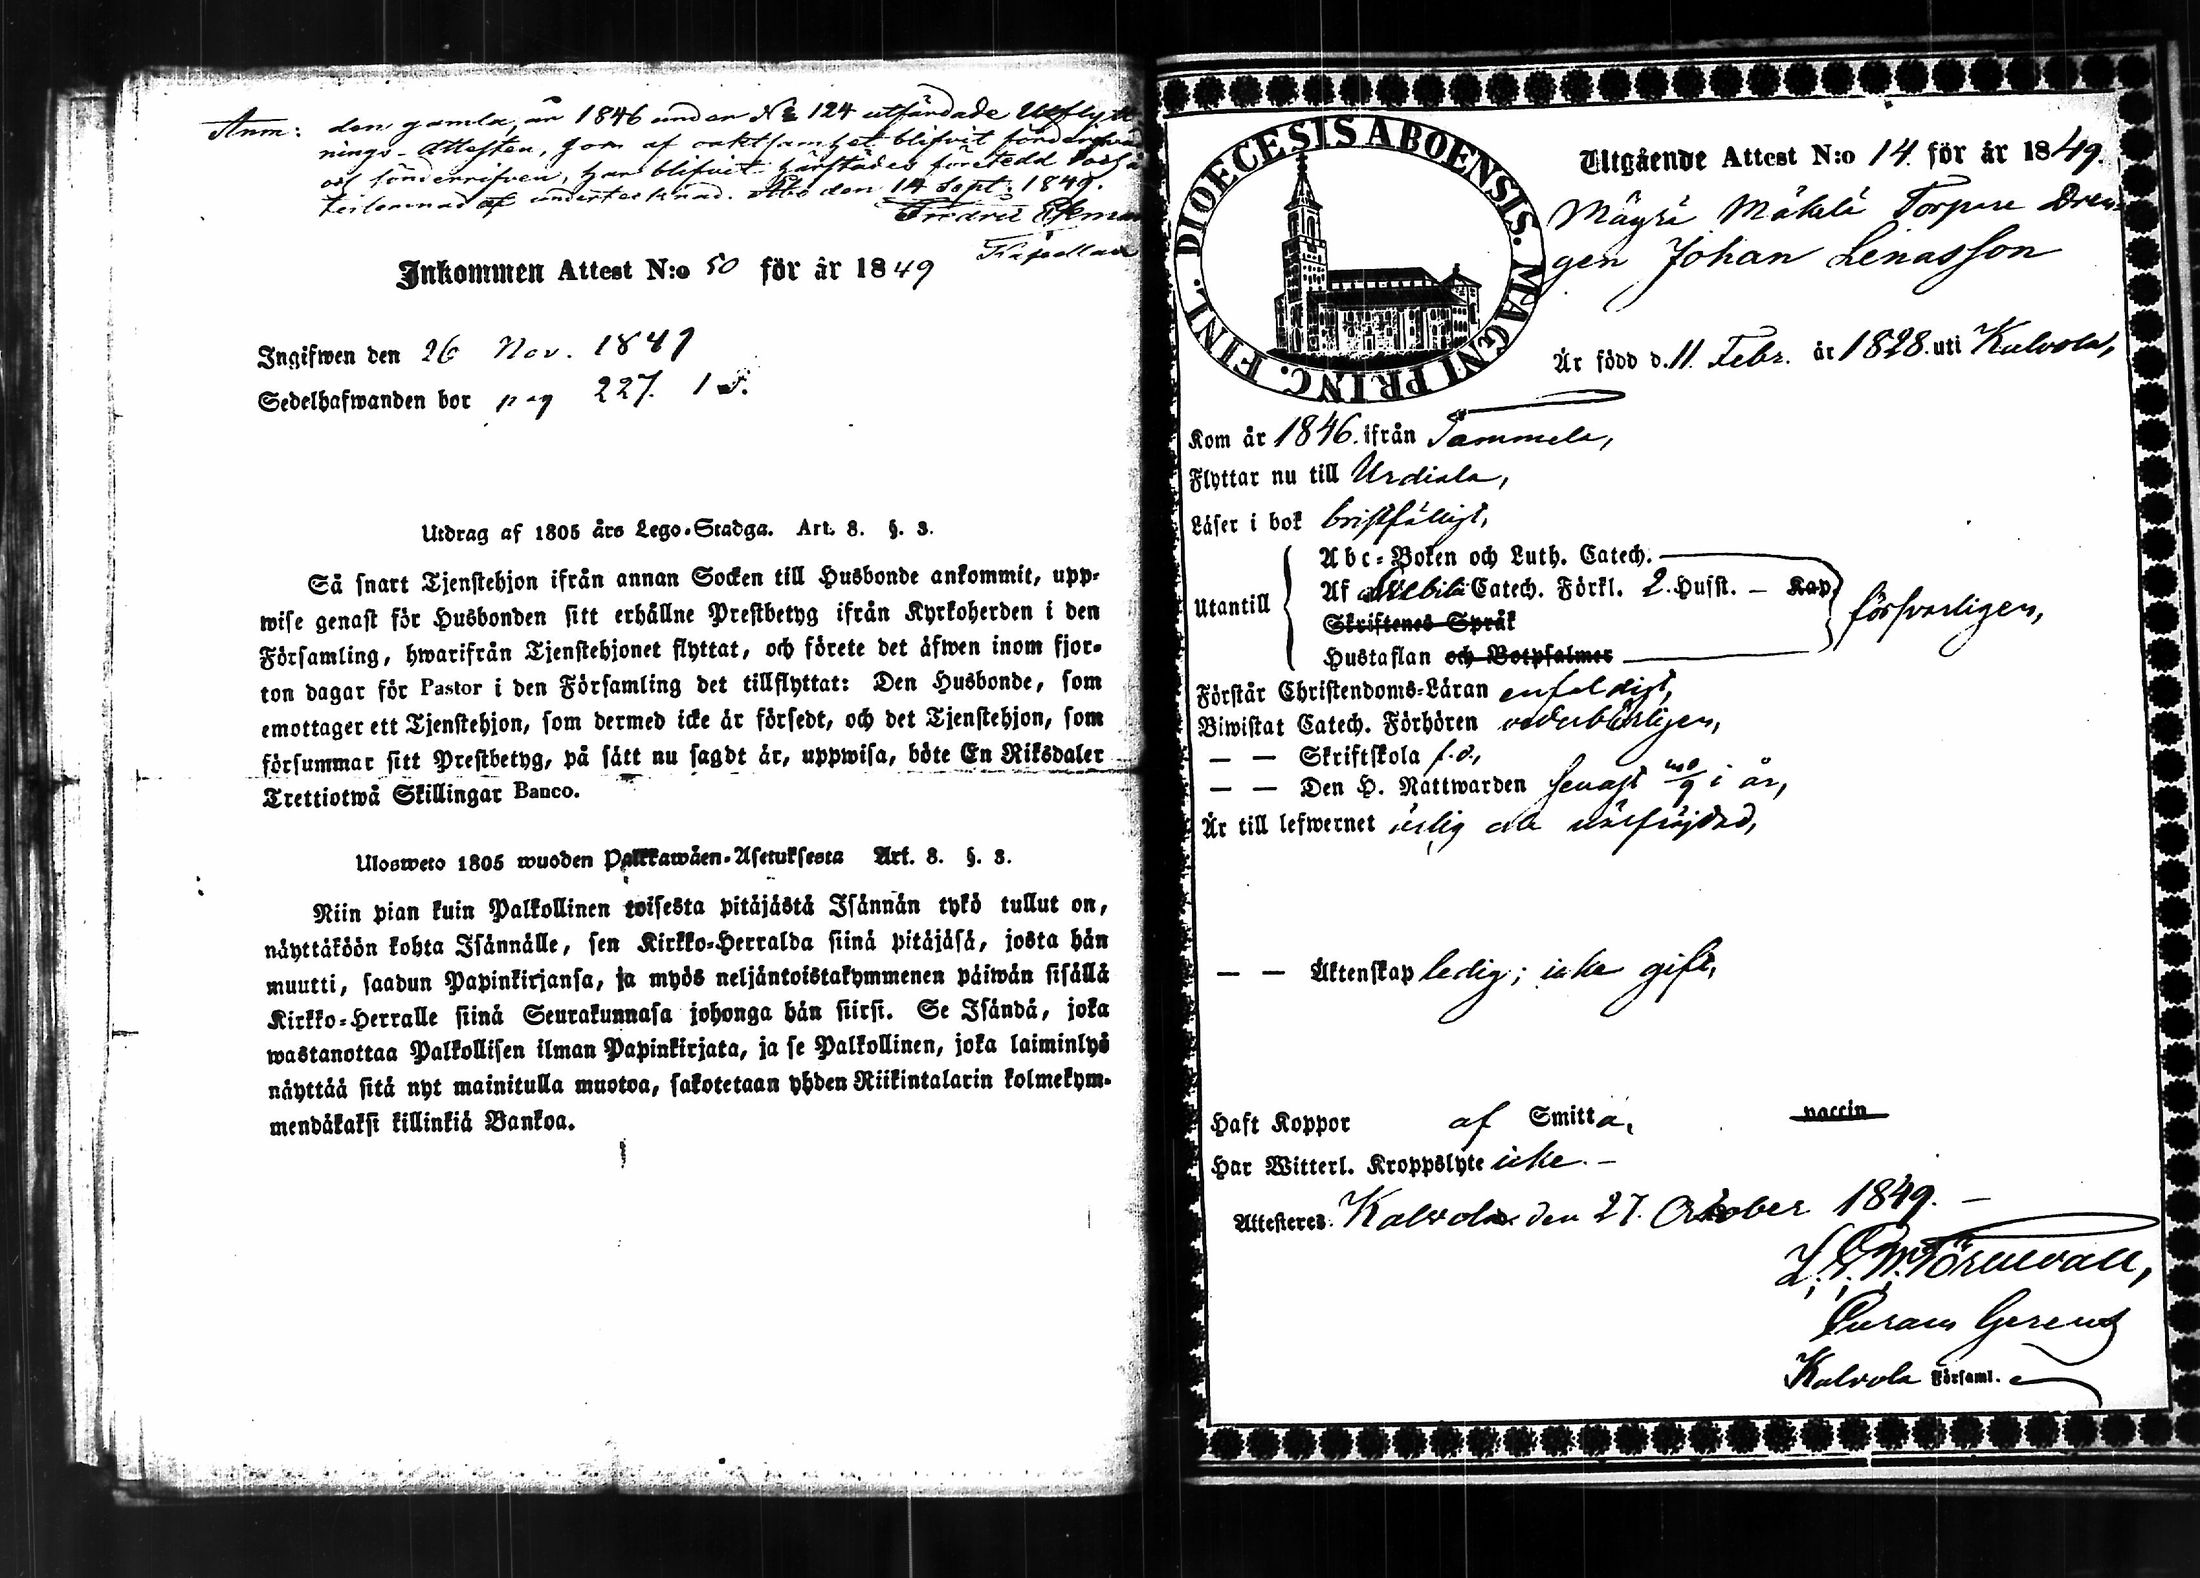 Anm: den gamla, år 1846 under No 124 utfärdade Utflytt-
nings-Attesten, som af oaktsamhet blifvit förderfvad
och sönderrifven, har blifvit härstädes företedd
undertecknad. Åbo den 14 Sept. 1849.
Fredric
Kapellan
Inkommen Attest N:o 50 för år 1849
Ingifwen den 26 Nov. 1849
Sedelhafwanden bor pag 227. 1 F.
Utdrag af 1805 års Lego-Stadga. Art. 8. §. 3.
Så snart Tjenstehjon ifrån annan Socken till Husbonde ankommit, upp-
wise genast för Husbonden sitt erhållne Prestbetyg ifrån Kyrkoherden i den
Församling, hwarifrån Tjenstehjonet flyttat, och förete det äfwen inom fjor-
ton dagar för Pastor i den Församling det tillflyttat: Den Husbonde, som
emottager ett Tjenstehjon, som dermed icke är försedt, och det Tjenstehjon, som
försummar sitt Prestbetyg, på sätt nu sagdt är, uppwisa, böte En Riksdaler
Trettiotwå Skillingar Banco.
Ulosweto 1805 wuoden Palkkawäen-Asetuksesta Art. 8. §. 3.
Niin pian kuin Palkollinen toisesta pitäjästä Isännän tykö tullut on,
näyttäköön kohta Isännälle, sen Kirkko-Herralda siinä pitäjäsä, josta hän
muutti, saadun Papinkirjansa, ja myös neljäntoistakymmenen päiwän sisällä
Kirkko-Herralle siinä Seurakunnasa johonga hän siirsi. Se Isändä, joka
wastanottaa Palkollisen ilman Papinkirjata, ja se Palkollinen, joka laiminlyö
näyttää sitä nyt mainitulla muotoa, sakotetaan yhden Riikintalarin kolmekym-
mendäkaksi killinkiä Bankoa.
DIOECESIS ABOENSIS. MAGNI PRINC. FINL.
Utgående Attest N:o 14. för år 1849.
Mäyrä Mäkelä Torpare Dren-
gen Johan Lenasson
Är född d. 11. Febr. år 1828. uti Kalvola,
Kom år 1846. ifrån Tammela,
Flyttar nu till Urdiala,
Läser i bok bristfälligt,
Utantill
Abc-Boken och Luth. Catech.
Af Catech. Förkl. 2. Hufst. — Kap.
Skriftenes Språk
Hustaflan och Botpsalmer
försvarligen,
Förstår Christendoms-Läran enfaldigt,
Biwistat Catech. Förhören vederbörligen,
— — Skriftskola f. d.,
— — Den H. Nattwarden senast i år,
Är till lefwernet ärlig och wälfräjdad,
— — Äktenskap ledig; icke gift,
Haft Koppor af Smitta, vaccin
Har Witterl. Kroppslyte icke. —
Attesteres. Kalvola den 27. October 1849. —
L. G. W. Törnevall,
Curam Gerens
Kalvola Församl.